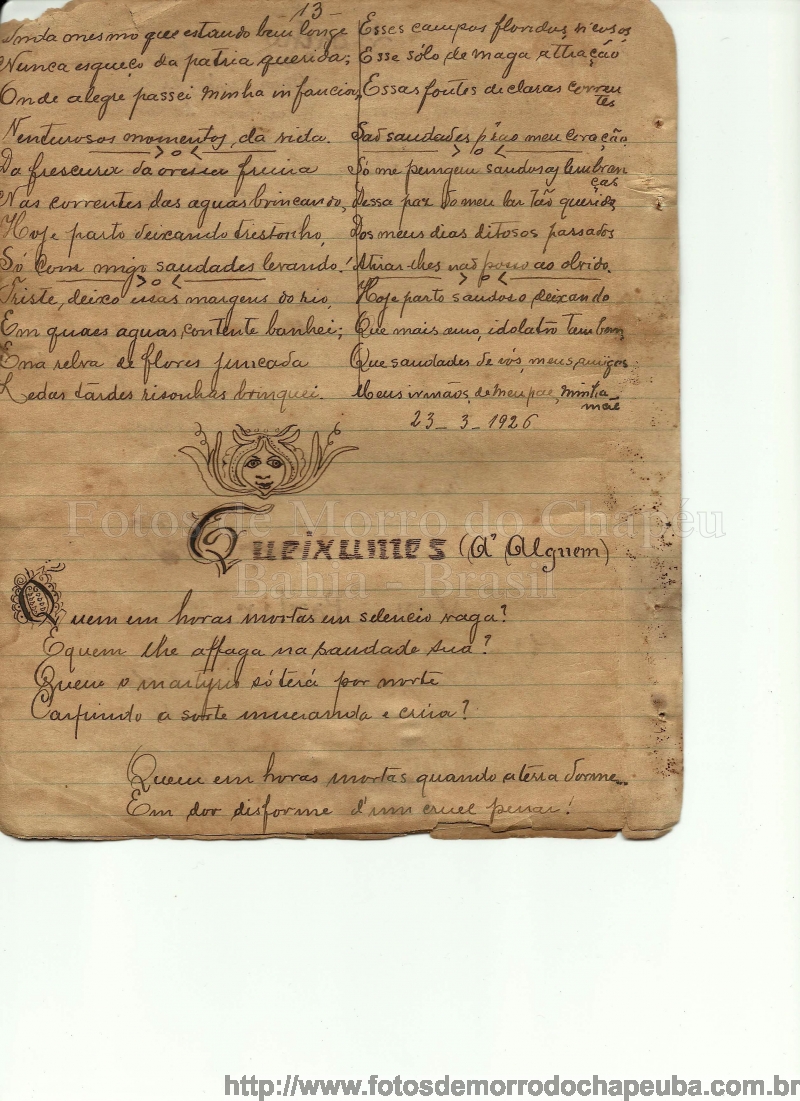 - 13 -
Inda mesmo que estando bem longe
Nunca esqueço da patria querida;
Onde alegre passei minha infancia,
Venturosos momentos, da vida.
Da frescura da
Nas correntes das aguas brincando,
Hoje parto deixando tristonho,
Só com migo saudades levando!
Triste, deixo essas margens do rio,
Em quaes aguas, contente banhei;
E na relva de flores juncada
Ledas tardes risonhas brinquei.
Esses campos floridos, viçosos
Esse sólo de maga attração
Essas fontes de claras corren
tes
São saudades p'ra o meu coração.
Só me pungem saudosas lembran
ças
Dessa paz do meu lar tão querido,
Dos meus dias ditosos passados
Atirar-lhes não posso ao olvido.
Hoje parto saudoso, deixando
Que mais amo, idolatro tambem,
Que saudades de vós, meus amigos
Meus irmãos, de meu pae, minha
mãe
23 - 3 - 1926
Queixumes (A' Alguem)
Quem em horas mortas em selencio vaga?
E quem lhe affaga na saudade sua?
Quem o martyrio só terá por norte
Carpindo a sorte e crúa?
Quem em horas mortas quando a terra dorme
Em dor disforme d'um cruel penar!
Fotos de Morro do Chapéu
Bahia - Brasil
http://www.fotosdemorrodochapeuba.com.br